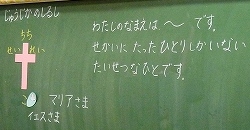 じゅうじかのしるし
ちち
せい れい
マリアさま
イエスさま
わたしのなまえは、～ です。
せかいに たったひとりしかいない
たいせつなひとです。